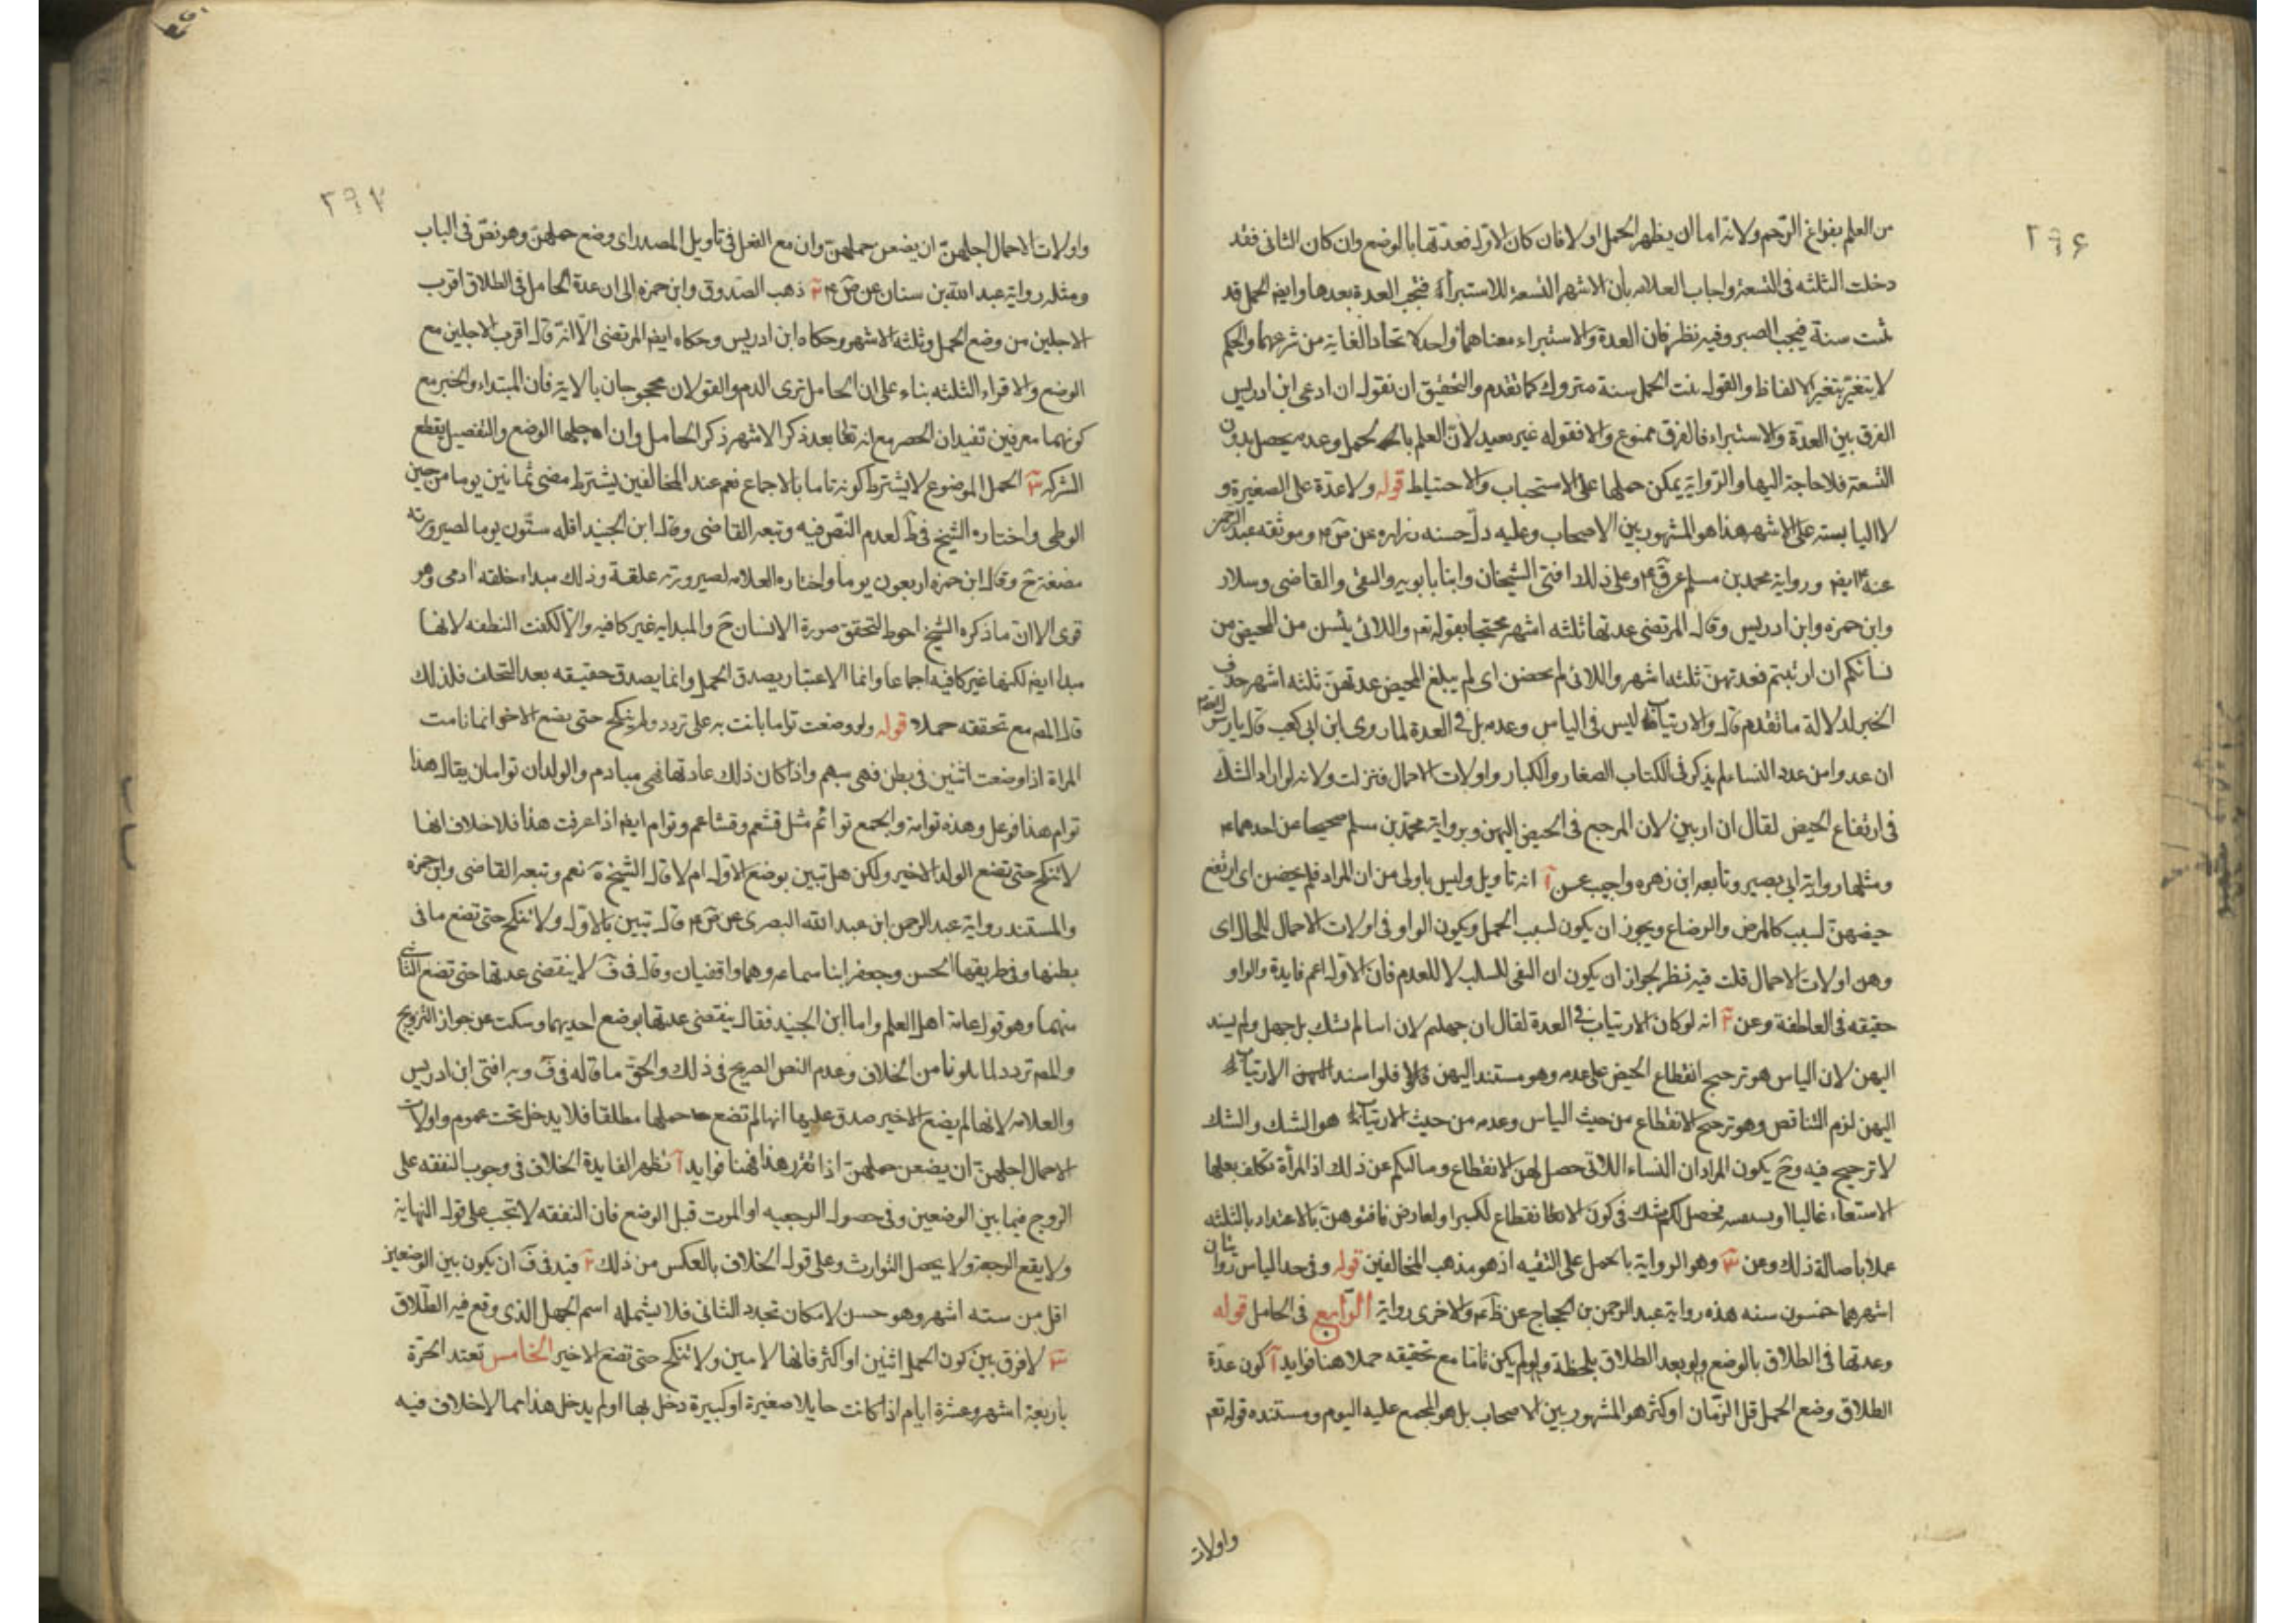 ٢٩۶
من العلم بفراغ الرحم ولانه اما ان يظهر الحمل او لا فان كان الاول فعدتها بالوضع وان كان الثانى فقد
دخلت الثلثه فى التسعة واجاب العلامه بان الاشهر التسعة للاستبراء فتجب العدة بعدها وايضا الحمل قد
تمت سنة فيجب الصبر وفيه نظر فان العدة والاستبراء معناهما واحد لاتحاد الغاية من شرعهما والحكم
لا يتغير بتغير الالفاظ والقول بنت الحمل سنة متروك كما تقدم والتحقيق ان نقول ان ادعى ابن ادريس
الفرق بين العدة والاستبراء فالفرق ممنوع والا فقوله غير بعيد لان العلم بالحمل وعدمه يحصل بدون
التسعة فلا حاجة اليها والرواية يمكن حملها على الاستحباب والاحتياط قوله ولا عدة على الصغيرة و
لا اليائسه على الاشهر هذا هو المشهور بين الاصحاب وعليه دل حسنه زراره عن ص م وموثقه عبد الرحمن
عنه م ايضا ورواية محمد بن مسلم عن ق م وعلى ذلك افتى الشيخان وابنا بابويه والتقى والقاضى وسلار
وابن حمزه وابن ادريس وقال المرتضى عدتها ثلثه اشهر محتجا بقوله تعم واللائى يئسن من المحيض من
نسائكم ان ارتبتم فعدتهن ثلثه اشهر واللائى لم يحضن اى لم يبلغ المحيض عدتهن ثلثه اشهر حذف
الخبر لدلالة ما تقدم قال والارتياب ليس فى الياس وعدمه بل فى العدة لما روى ابن ابى كعب قال يا رسول الله
ان عددا من عدد النساء لم يذكر فى الكتاب الصغار والكبار واولات الاحمال فنزلت ولانه لو اراد الشك
فى ارتفاع الحيض لقال ان ارتبين لان المرجع فى الحيض اليهن وبرواية محمد بن مسلم صحيحا عن احدهما م
ومثلها رواية ابى بصير وتابعه ابن زهره واجيب عن آ انه تاويل وليس باولى من ان المراد فلم يحضن اى ارتفع
حيضهن لسبب كالمرض والرضاع ويجوز ان يكون لسبب الحمل ويكون الواو فى اولات الاحمال للحال اى
وهن اولات الاحمال قلت فيه نظر لجواز ان يكون ان النفى للسلب لا للعدم فان الاول اعم فايدة والواو
حقيقه فى العاطفة وعن ٢ انه لو كان الارتياب فى العدة لقال ان جهلتم لان اسا لم يشك بل جهل ولم يسند
اليهن لان الياس هو ترجيح انقطاع الحيض على عدمه وهو مستند اليهن فلو اسند الارتياب
اليهن لزم التناقض وهو ترجيح الانقطاع من حيث الياس وعدمه من حيث الارتياب هو الشك والشك
لا ترجيح فيه وح يكون المراد ان النساء اللاتى حصل لهن الانقطاع وسالكم عن ذلك اذ المرأة تكلف بعلها
الاستعلام غالبا فحصل لكم شك فى كون الانقطاع لكبر او لعارض فافتوهن بالاعتداد بالثلثه
عملا باصالة ذلك وعن ٣ وهو الرواية بالحمل على التقيه اذ هو مذهب المخالفين قوله وفى حد الياس روايتان
اشهرهما خمسون سنه هذه رواية عبد الرحمن بن الحجاج عن ظ م والاخرى رواية الرابع فى الحامل قوله
وعدتها فى الطلاق بالوضع ولو بعد الطلاق بلحظة ولو لم يكن تاما مع تحقيقه حملا هنا فوايد آ كون عدة
الطلاق وضع الحمل قل الزمان او كثر هو المشهور بين الاصحاب بل هو المجمع عليه اليوم ومستنده قوله تعم
واولات
٢٩٧
واولات الاحمال اجلهن ان يضعن حملهن وان مع الفعل فى تاويل المصدر اى وضع حملهن وهو نص فى الباب
ومثله رواية عبد الله بن سنان عن ص م ٢ ذهب الصدوق وابن حمزه الى ان عدة الحامل فى الطلاق اقرب
الاجلين من وضع الحمل وثلثه الاشهر وحكاه ابن ادريس وحكاه ايضا المرتضى الا انه قال اقرب الاجلين مع
الوضع والاقراء الثلثه بناء على ان الحامل ترى الدم والقولان محجوجان بالاية فان المبتداء والخبر مع
كونهما معرفين تفيدان الحصر مع انه تعالى بعد ذكر الاشهر ذكر الحامل وان اجلها الوضع والتفصيل يقطع
الشركه ٣ الحمل الموضوع لا يشترط كونه تاما بالاجماع نعم عند المخالفين يشترط مضى ثمانين يوما من حين
الوطى واختاره الشيخ فى ط لعدم النص فيه وتبعه القاضى وقال ابن الجنيد اقله ستون يوما لصيرورته
مضغة ح وقال ابن حمزه اربعون يوما واختاره العلامه لصيرورته علقة وذلك مبداء خلقه آدمى وهو
قوى الا ان ما ذكره الشيخ احوط لتحقق صورة الانسان ح والمبدايه غير كافيه والا لكفت النطفه لانها
مبدا ايضا لكنها غير كافيه اجماعا وانما الاعتبار بصدق الحمل وانما يصدق حقيقه بعد التخلق فلذلك
قال المص مع تحققه حملا قوله ولو وضعت تواما بانت به على تردد ولم ينكح حتى يضع الاخر انما نامت
المراة اذا وضعت اثنين فى بطن فهى متئم واذا كان ذلك عادتها فهى متيادم والولدان توامان يقال هذا
توام هذا فوعل وهذه توامة والجمع توائم مثل قشعم وقشاعم وتوام ايضا اذا عرفت هذا فلا خلاف انها
لا تنكح حتى تضع الولد الاخير ولكن هل تبين بوضع الاول ام لا قال الشيخ فى ة نعم وتبعه القاضى وابن حمزه
والمستند رواية عبد الرحمن ابن عبد الله البصرى عن ص م قال تبين بالاول ولا تنكح حتى تضع ما فى
بطنها وفى طريقها الحسن وجعفر ابنا سماعه وهما واقفيان وقال فى ف لا ينقضى عدتها حتى تضع الثانى
منهما وهو قول عامة اهل العلم واما ابن الجنيد فقال ينقضى عدتها بوضع احديهما وسكت عن جواز التزويج
والمص تردد لما تلونا من الخلاف وعدم النص الصريح فى ذلك والحق ما قاله فى ف وبه افتى ابن ادريس
والعلامه لانها لم يضع الاخير صدق عليها انها لم تضع حملها مطلقا فلا يدخل تحت عموم واولات
الاحمال اجلهن ان يضعن حملهن اذا تقرر هذا فهنا فوايد آ تظهر الفايدة الخلاف فى وجوب النفقه على
الزوج فيما بين الوضعين وفى حصول الرجعيه او الموت قبل الوضع فان النفقه لا تجب على قول النهاية
ولا يقع الرجعة ولا يحصل التوارث وعلى قول الخلاف بالعكس من ذلك ٢ قيد فى ف ان يكون بين الوضعين
اقل من سته اشهر وهو حسن لامكان تجدد الثانى فلا يشمله اسم الحمل الذى وقع فيه الطلاق
٣ لا فرق بين كون الحمل اثنين او اكثر فانها لا تبين ولا تنكح حتى تضع الاخير الخامس تعتد الحرة
باربعة اشهر وعشرة ايام اذا كانت حايلا صغيرة او كبيرة دخل بها او لم يدخل هذا مما لا خلاف فيه